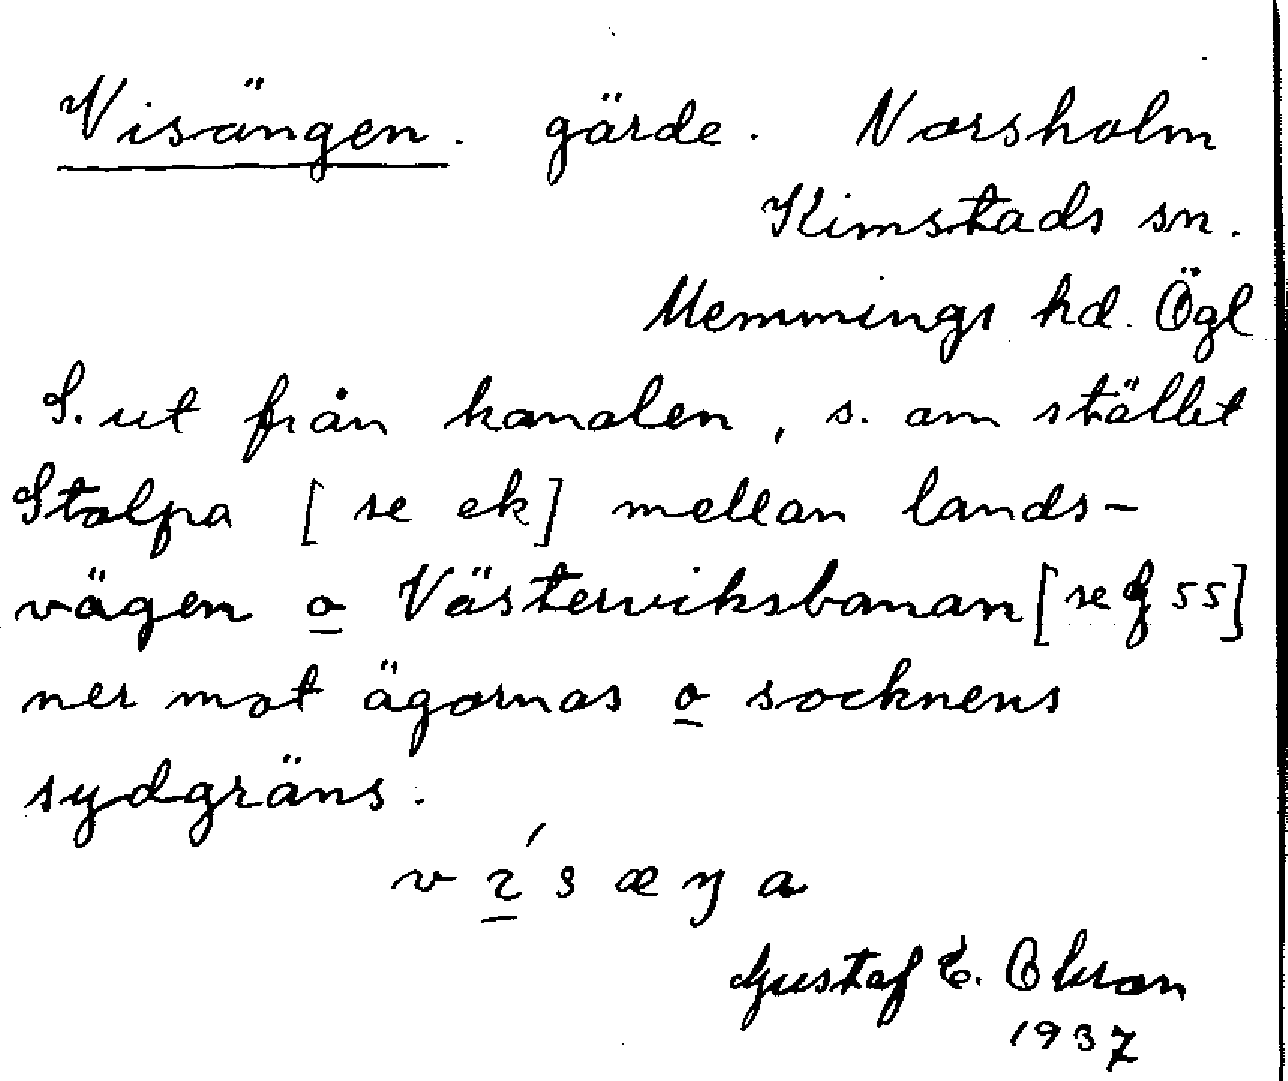 Visängen. gärde. Norsholm
Kimstads sn.
Memmings hd. Ögl
S. ut från kanalen, s. om stället
Stolpa [se ek] mellan lands-
vägen o Västerviksbanan [se f 55]
ner mot ägornas o socknens
sydgräns.
v ɩ́ s æ ŋ a
Gustaf E.
1937